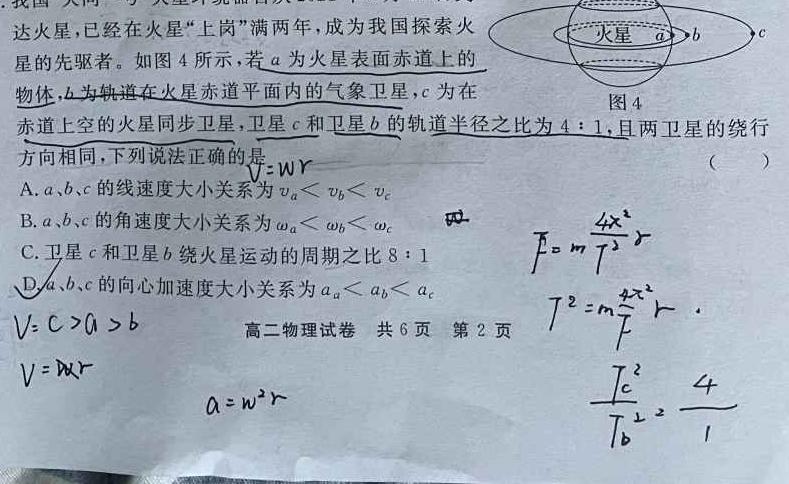 达火星,已经在火星“上岗”满两年,成为我国探索火
星的先驱者。如图4所示,若a为火星表面赤道上的
物体,b为轨道在火星赤道平面内的气象卫星,c为在
赤道上空的火星同步卫星,卫星c和卫星b的轨道半径之比为4:1,且两卫星的绕行
方向相同,下列说法正确的是 ( )
火星 a b c
图4
V=wr
A. a、b、c的线速度大小关系为vₐ<v_b<v_c
B. a、b、c的角速度大小关系为ωₐ<ω_b<ω_c
C. 卫星c和卫星b绕火星运动的周期之比8:1
D. a、b、c的向心加速度大小关系为aₐ<a_b<a_c
F=m 4π²/T² r
T²=m 4π²/F r
Tc²/Tb²=4/1
V=c>a>b
高二物理试卷 共6页 第2页
a=w²r